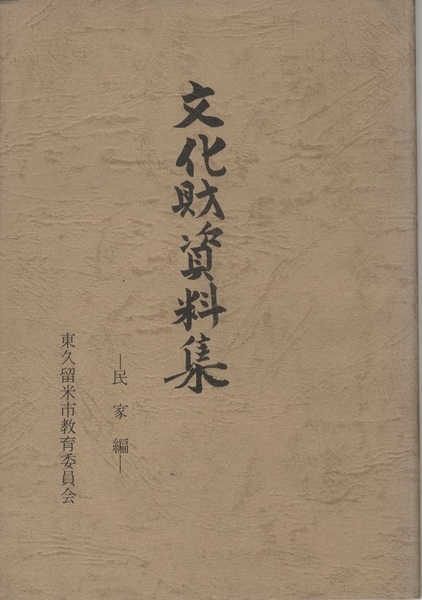 文化財資料集
―民家編―
東久留米市教育委員会